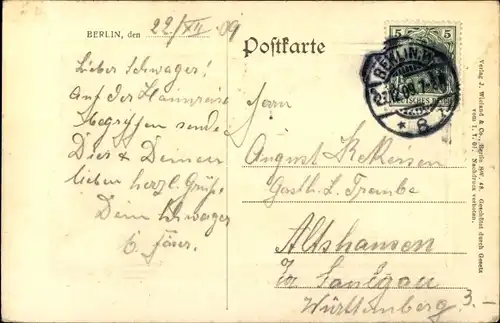 BERLIN, den 22/XII 09
Postkarte
Lieber Schwager!
Auf der Heimreise
begriffen sende
Dir & Deinen
lieben herzl. Grüße
Dein Schwager
Herrn
August
Gasth. z. Traube
Altshausen
Saulgau
Württemberg
3.-
5
BERLIN.W.
DEUTSCHES REICH
* 8
Verlag J. Wieland & Co., Berlin SW. 48. Geschützt durch Gesetz
vom 1. 7. 07. Nachdruck verboten.